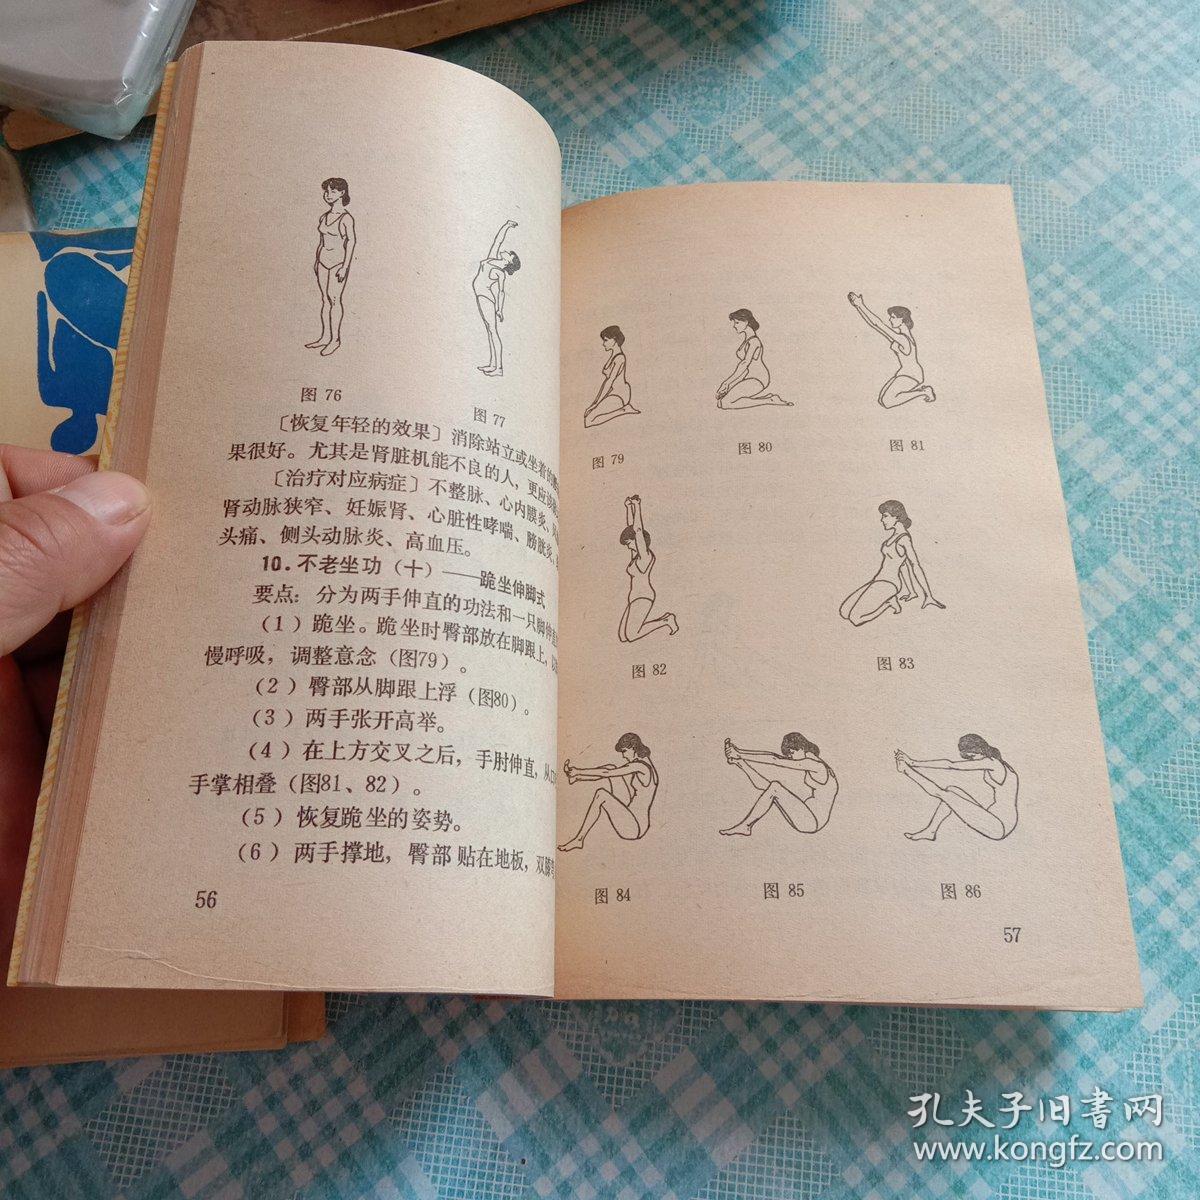 图 76
图 77
〔恢复年轻的效果〕消除站立或坐着的
果很好。尤其是肾脏机能不良的人，更应该
〔治疗对应病症〕不整脉、心内膜炎、
肾动脉狭窄、妊娠肾、心脏性哮喘、膀胱炎、
头痛、侧头动脉炎、高血压。
10.不老坐功（十）——跪坐伸脚式
要点：分为两手伸直的功法和一只脚伸直
（1）跪坐。跪坐时臀部放在脚跟上，以
慢呼吸，调整意念（图79）。
（2）臀部从脚跟上浮（图80）。
（3）两手张开高举。
（4）在上方交叉之后，手肘伸直，从
手掌相叠（图81、82）。
（5）恢复跪坐的姿势。
（6）两手撑地，臀部贴在地板，双膝
56
图 79
图 80
图 81
图 82
图 83
图 84
图 85
图 86
57
孔夫子旧書网
www.kongfz.com